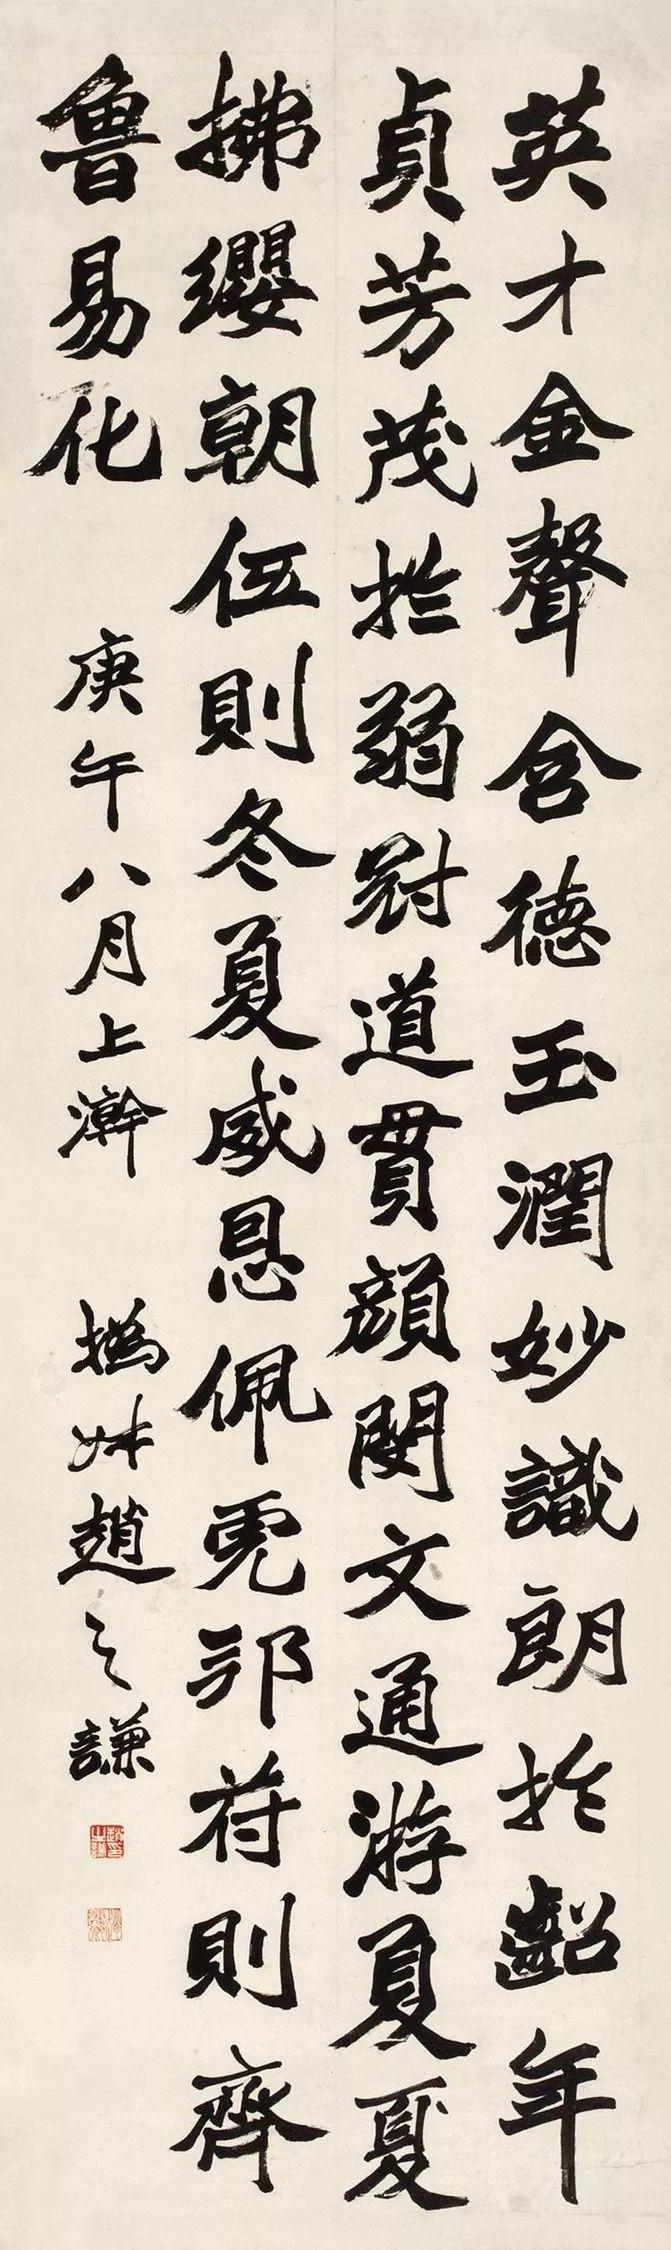 英才金聲含德玉潤妙識朗於齠年
貞芳茂於弱對道貫顏閔文通游夏夏
拂纓朝伍則冬夏威恩佩虎邦符則齊
魯易化
庚午八月上澣
撝叔趙之謙